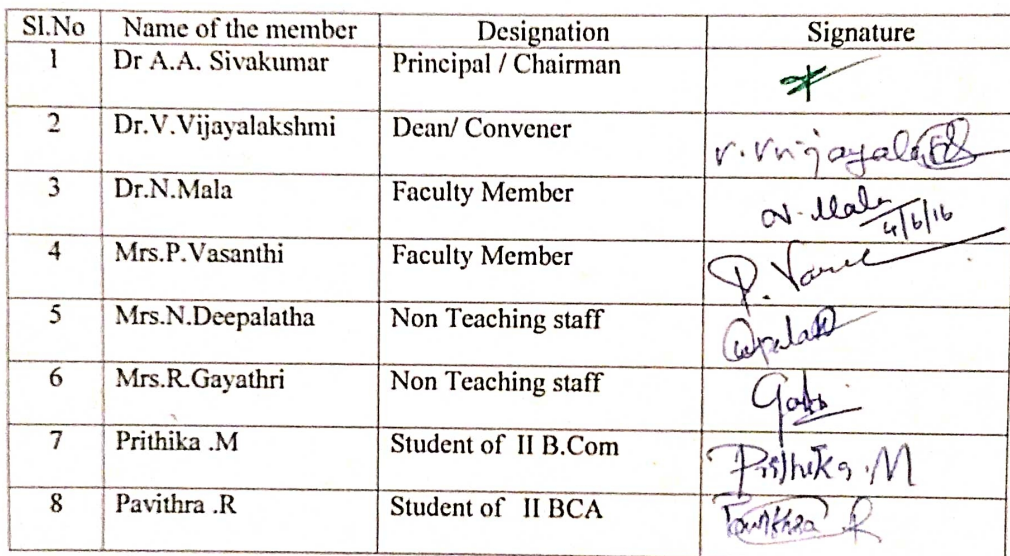 Sl.No Name of the member Designation Signature
1 Dr A.A. Sivakumar Principal / Chairman
2 Dr.V.Vijayalakshmi Dean/ Convener
3 Dr.N.Mala Faculty Member N. Mala
4/6/16
4 Mrs.P.Vasanthi Faculty Member
5 Mrs.N.Deepalatha Non Teaching staff
6 Mrs.R.Gayathri Non Teaching staff
7 Prithika .M Student of II B.Com Prithika .M
8 Pavithra .R Student of II BCA Pavithra R